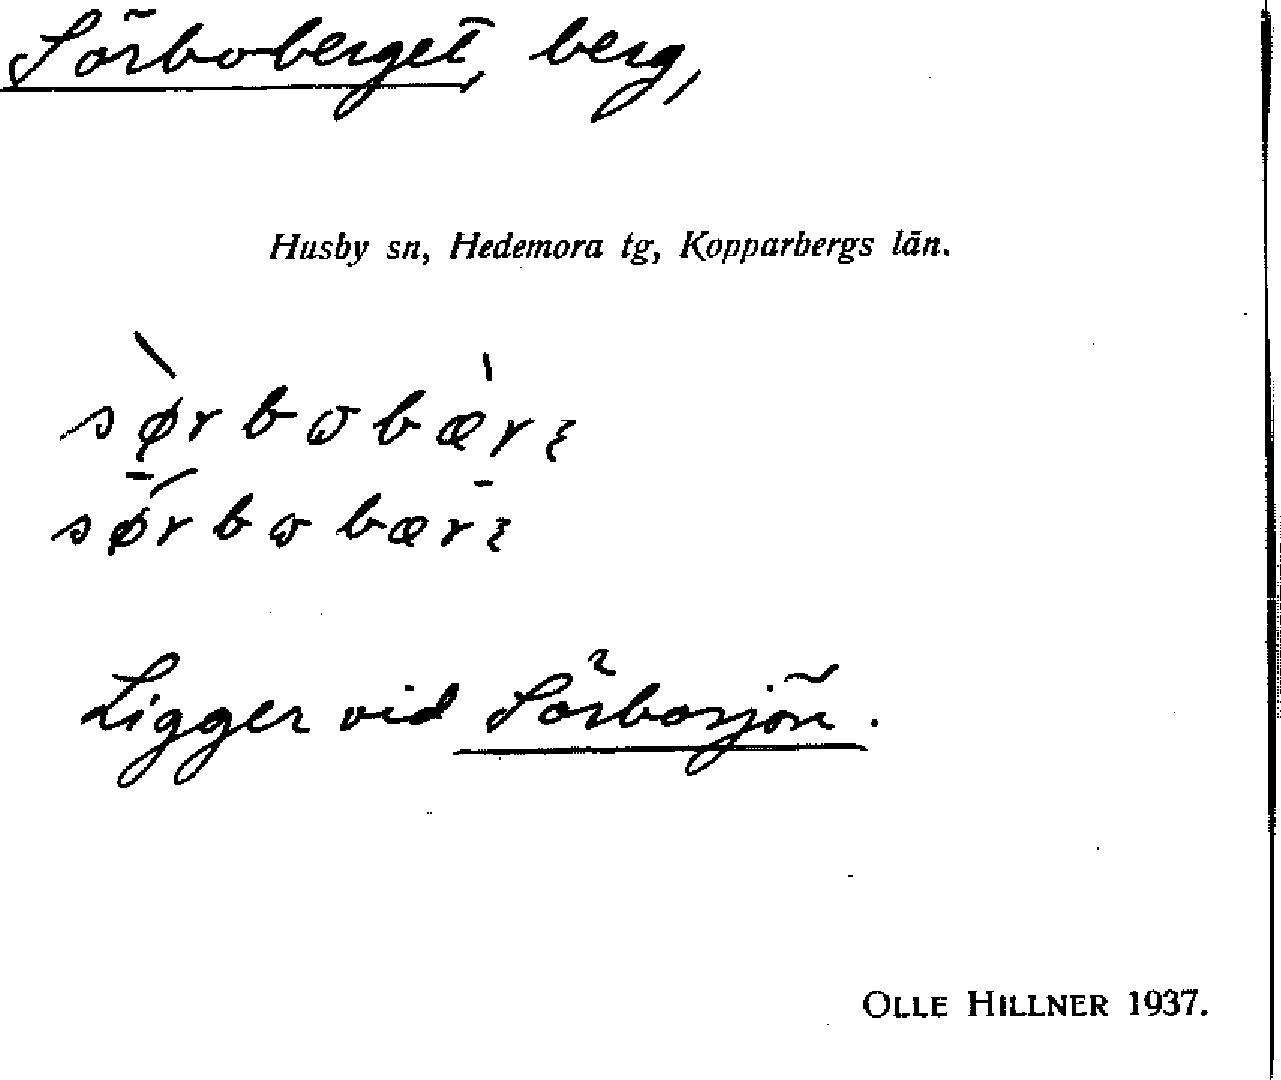 Sörboberget, berg,
Husby sn, Hedemora tg, Kopparbergs län.
sø̀rbωbæ̀rε
sørbωbærε
Ligger vid Sörbosjön.
OLLE HILLNER 1937.